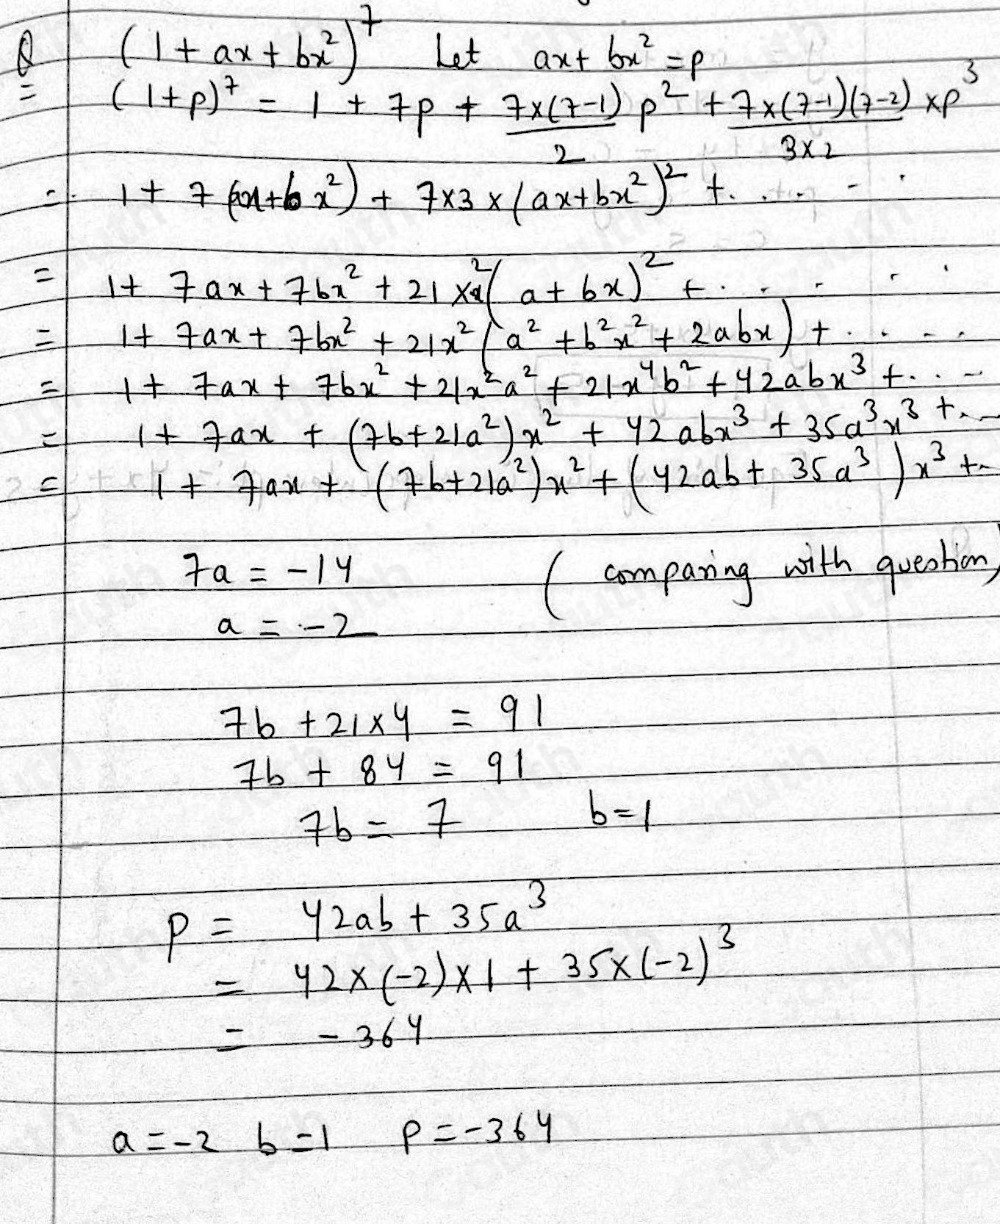 Q (1 + ax + bx²)⁷ Let ax + bx² = p
= (1+p)⁷ = 1 + 7p + 7×(7-1)/2 p² + 7×(7-1)(7-2)/3×2 × p³
= 1 + 7(ax+bx²) + 7×3×(ax+bx²)² + . . . - .
= 1+ 7ax + 7bx² + 21 × x²(a + bx)² + . . . . . .
= 1+ 7ax + 7bx² + 21x²(a² + b²x² + 2abx) + . . . .
= 1 + 7ax + 7bx² + 21x²a² + 21x⁴b² + 42abx³ + . . -
= 1+ 7ax + (7b+21a²)x² + 42abx³ + 35a³x³ + . . -
= 1 + 7ax + (7b+21a²)x² + (42ab + 35a³)x³ + --
7a = -14 (comparing with question)
a = -2
7b + 21×4 = 91
7b + 84 = 91
7b = 7 b=1
p = 42ab + 35a³
= 42×(-2)×1 + 35×(-2)³
= -364
a = -2 b=1 p = -364